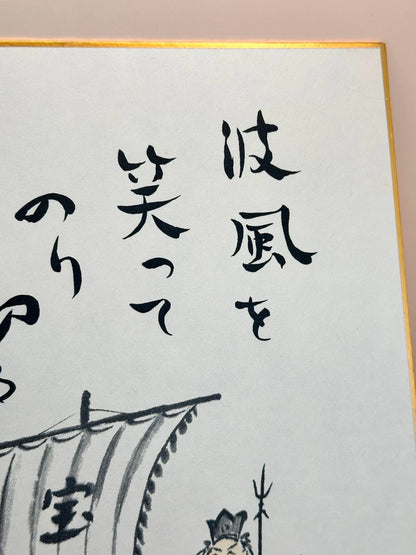 波風を
笑って
のり
宝